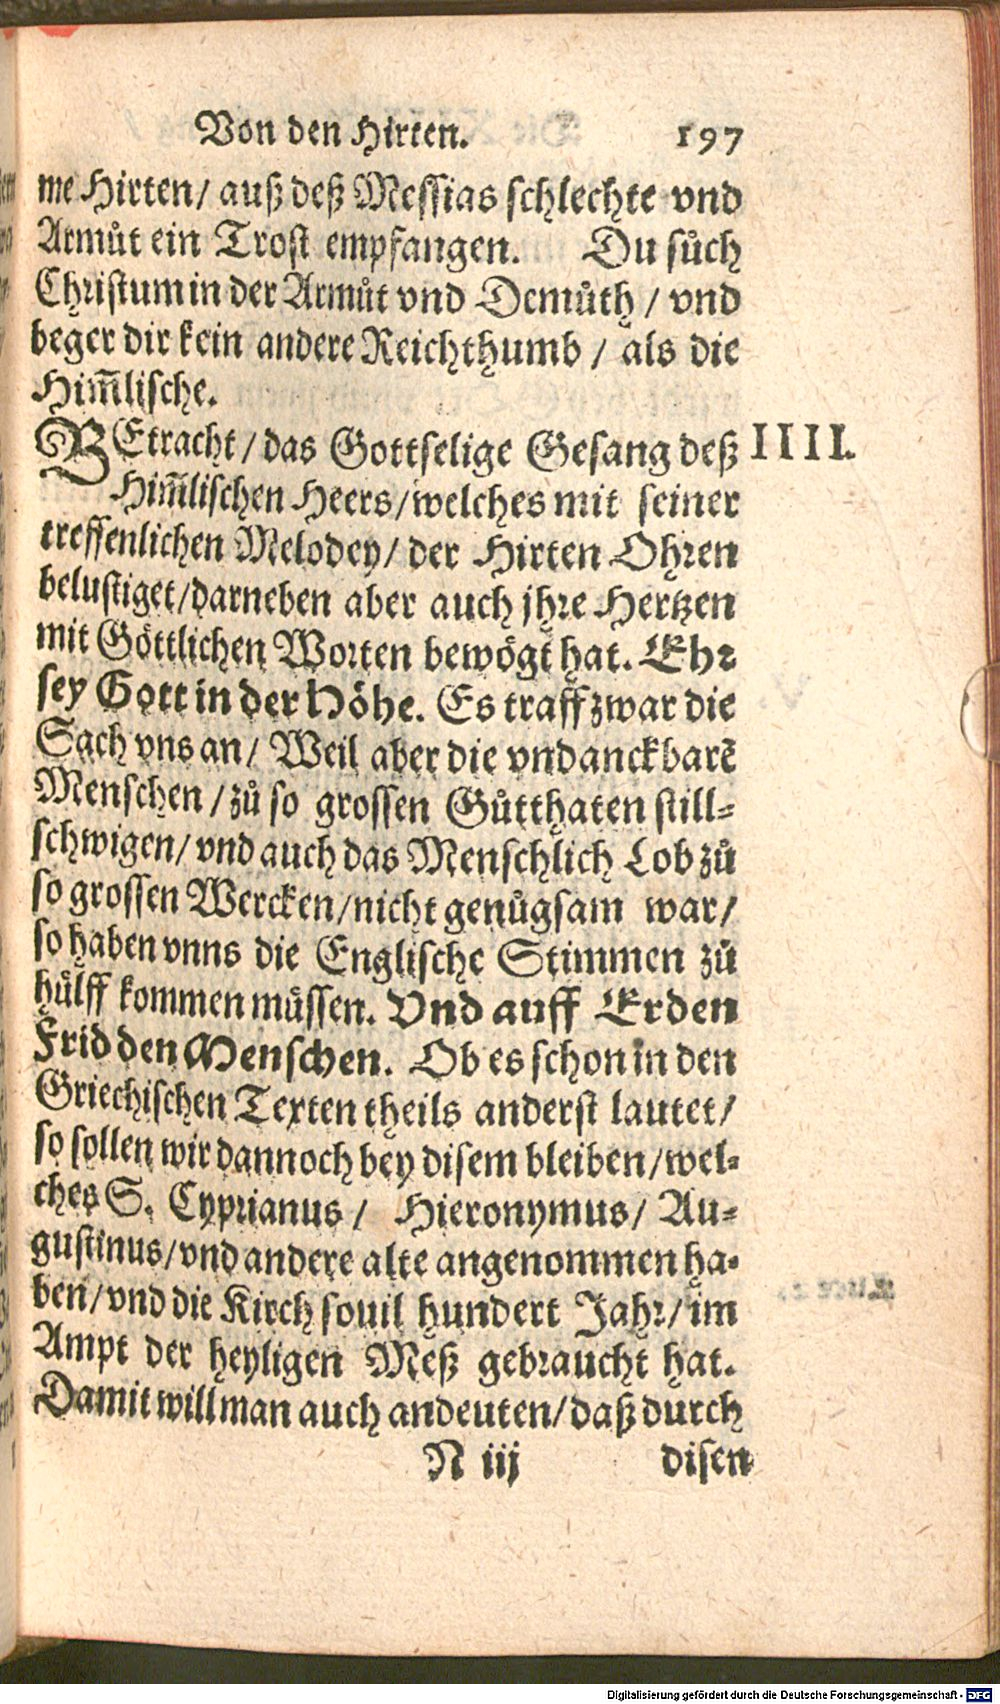 Von den Hirten. 197
me Hirten/ auß deß Messias schlechte vnd
Armůt ein Trost empfangen. Du sůch
Christum in der Armůt vnd Demůth / vnd
beger dir kein andere Reichthumb / als die
Him̃lische.
BEtracht / das Gottselige Gesang deß IIII.
Him̃lischen Heers/welches mit seiner
treffenlichen Melodey/ der Hirten Ohren
belustiget/darneben aber auch jhre Hertzen
mit Göttlichen Worten bewögt hat. Ehr
sey Gott in der Höhe. Es traff zwar die
Sach vns an/ Weil aber die vndanckbarẽ
Menschen / zů so grossen Gůtthaten still-
schwigen/ vnd auch das Menschlich Lob zů
so grossen Wercken/nicht genůgsam war/
so haben vnns die Englische Stimmen zů
hülff kommen müssen. Vnd auff Erden
Frid den Menschen. Ob es schon in den
Griechischen Texten theils anderst lautet/
so sollen wir dannoch bey disem bleiben/wel-
ches S. Cyprianus / Hieronymus/ Au-
gustinus/vnd andere alte angenommen ha-
ben/vnd die Kirch souil hundert Jahr/ im
Ampt der heyligen Meß gebraucht hat.
Damit will man auch andeuten/daß durch
N iij disen
Digitalisierung gefördert durch die Deutsche Forschungsgemeinschaft - DFG